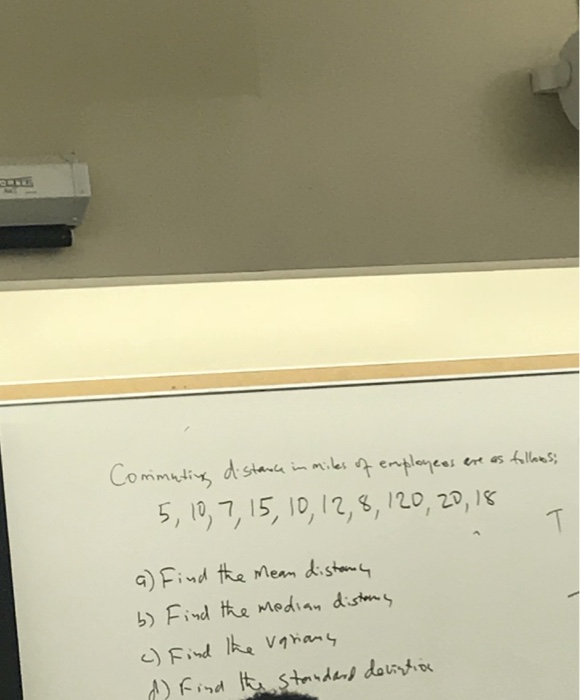 Commuting distance in miles of employees are as follows;
5, 10, 7, 15, 10, 12, 8, 120, 20, 18
T
a) Find the Mean distance
b) Find the median distance
c) Find the variance
d) Find the standard deviation